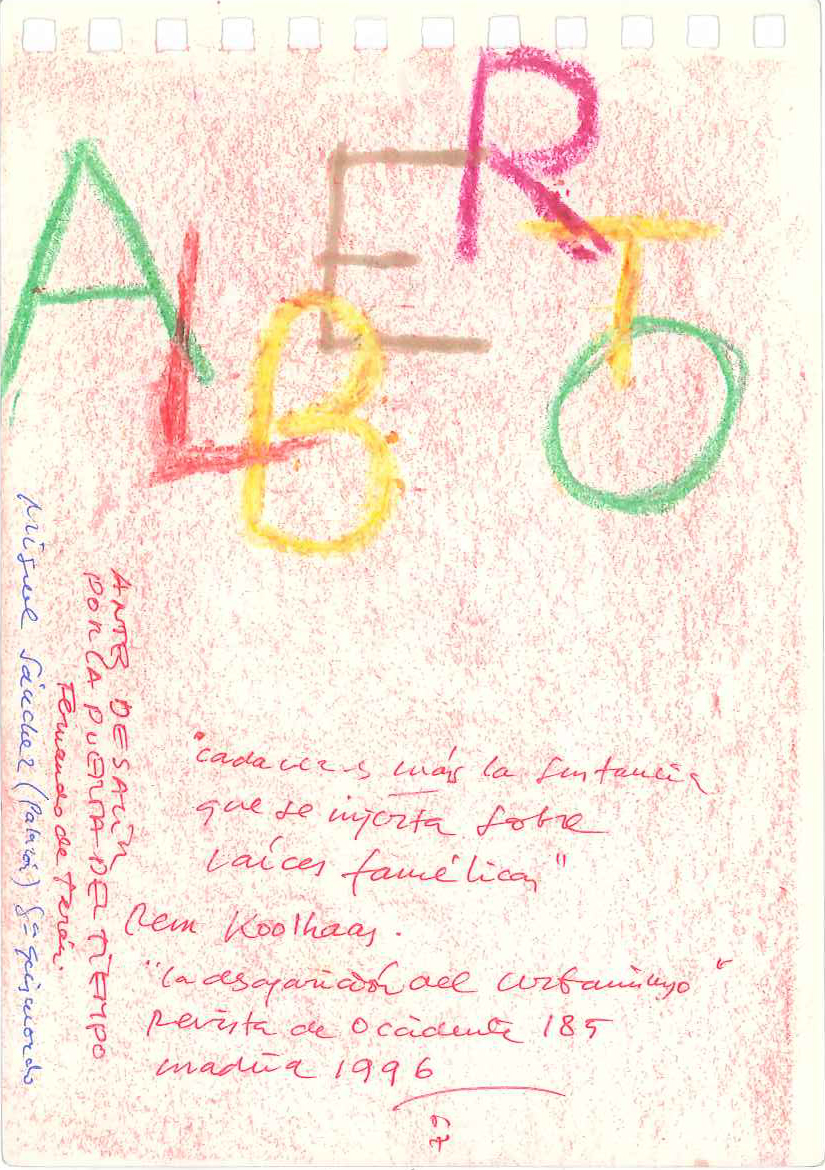 ALBERTO
"cada vez es más la sustancia
que se injerta sobre
raíces famélicas"
Rem Koolhaas.
"la desaparición del urbanismo"
Revista de Occidente 185
madrid 1996
79
ANTES DE SALIR
POR LA PUERTA DEL TIEMPO
Fernando de Terán.
Miguel Sánchez (Palazón)